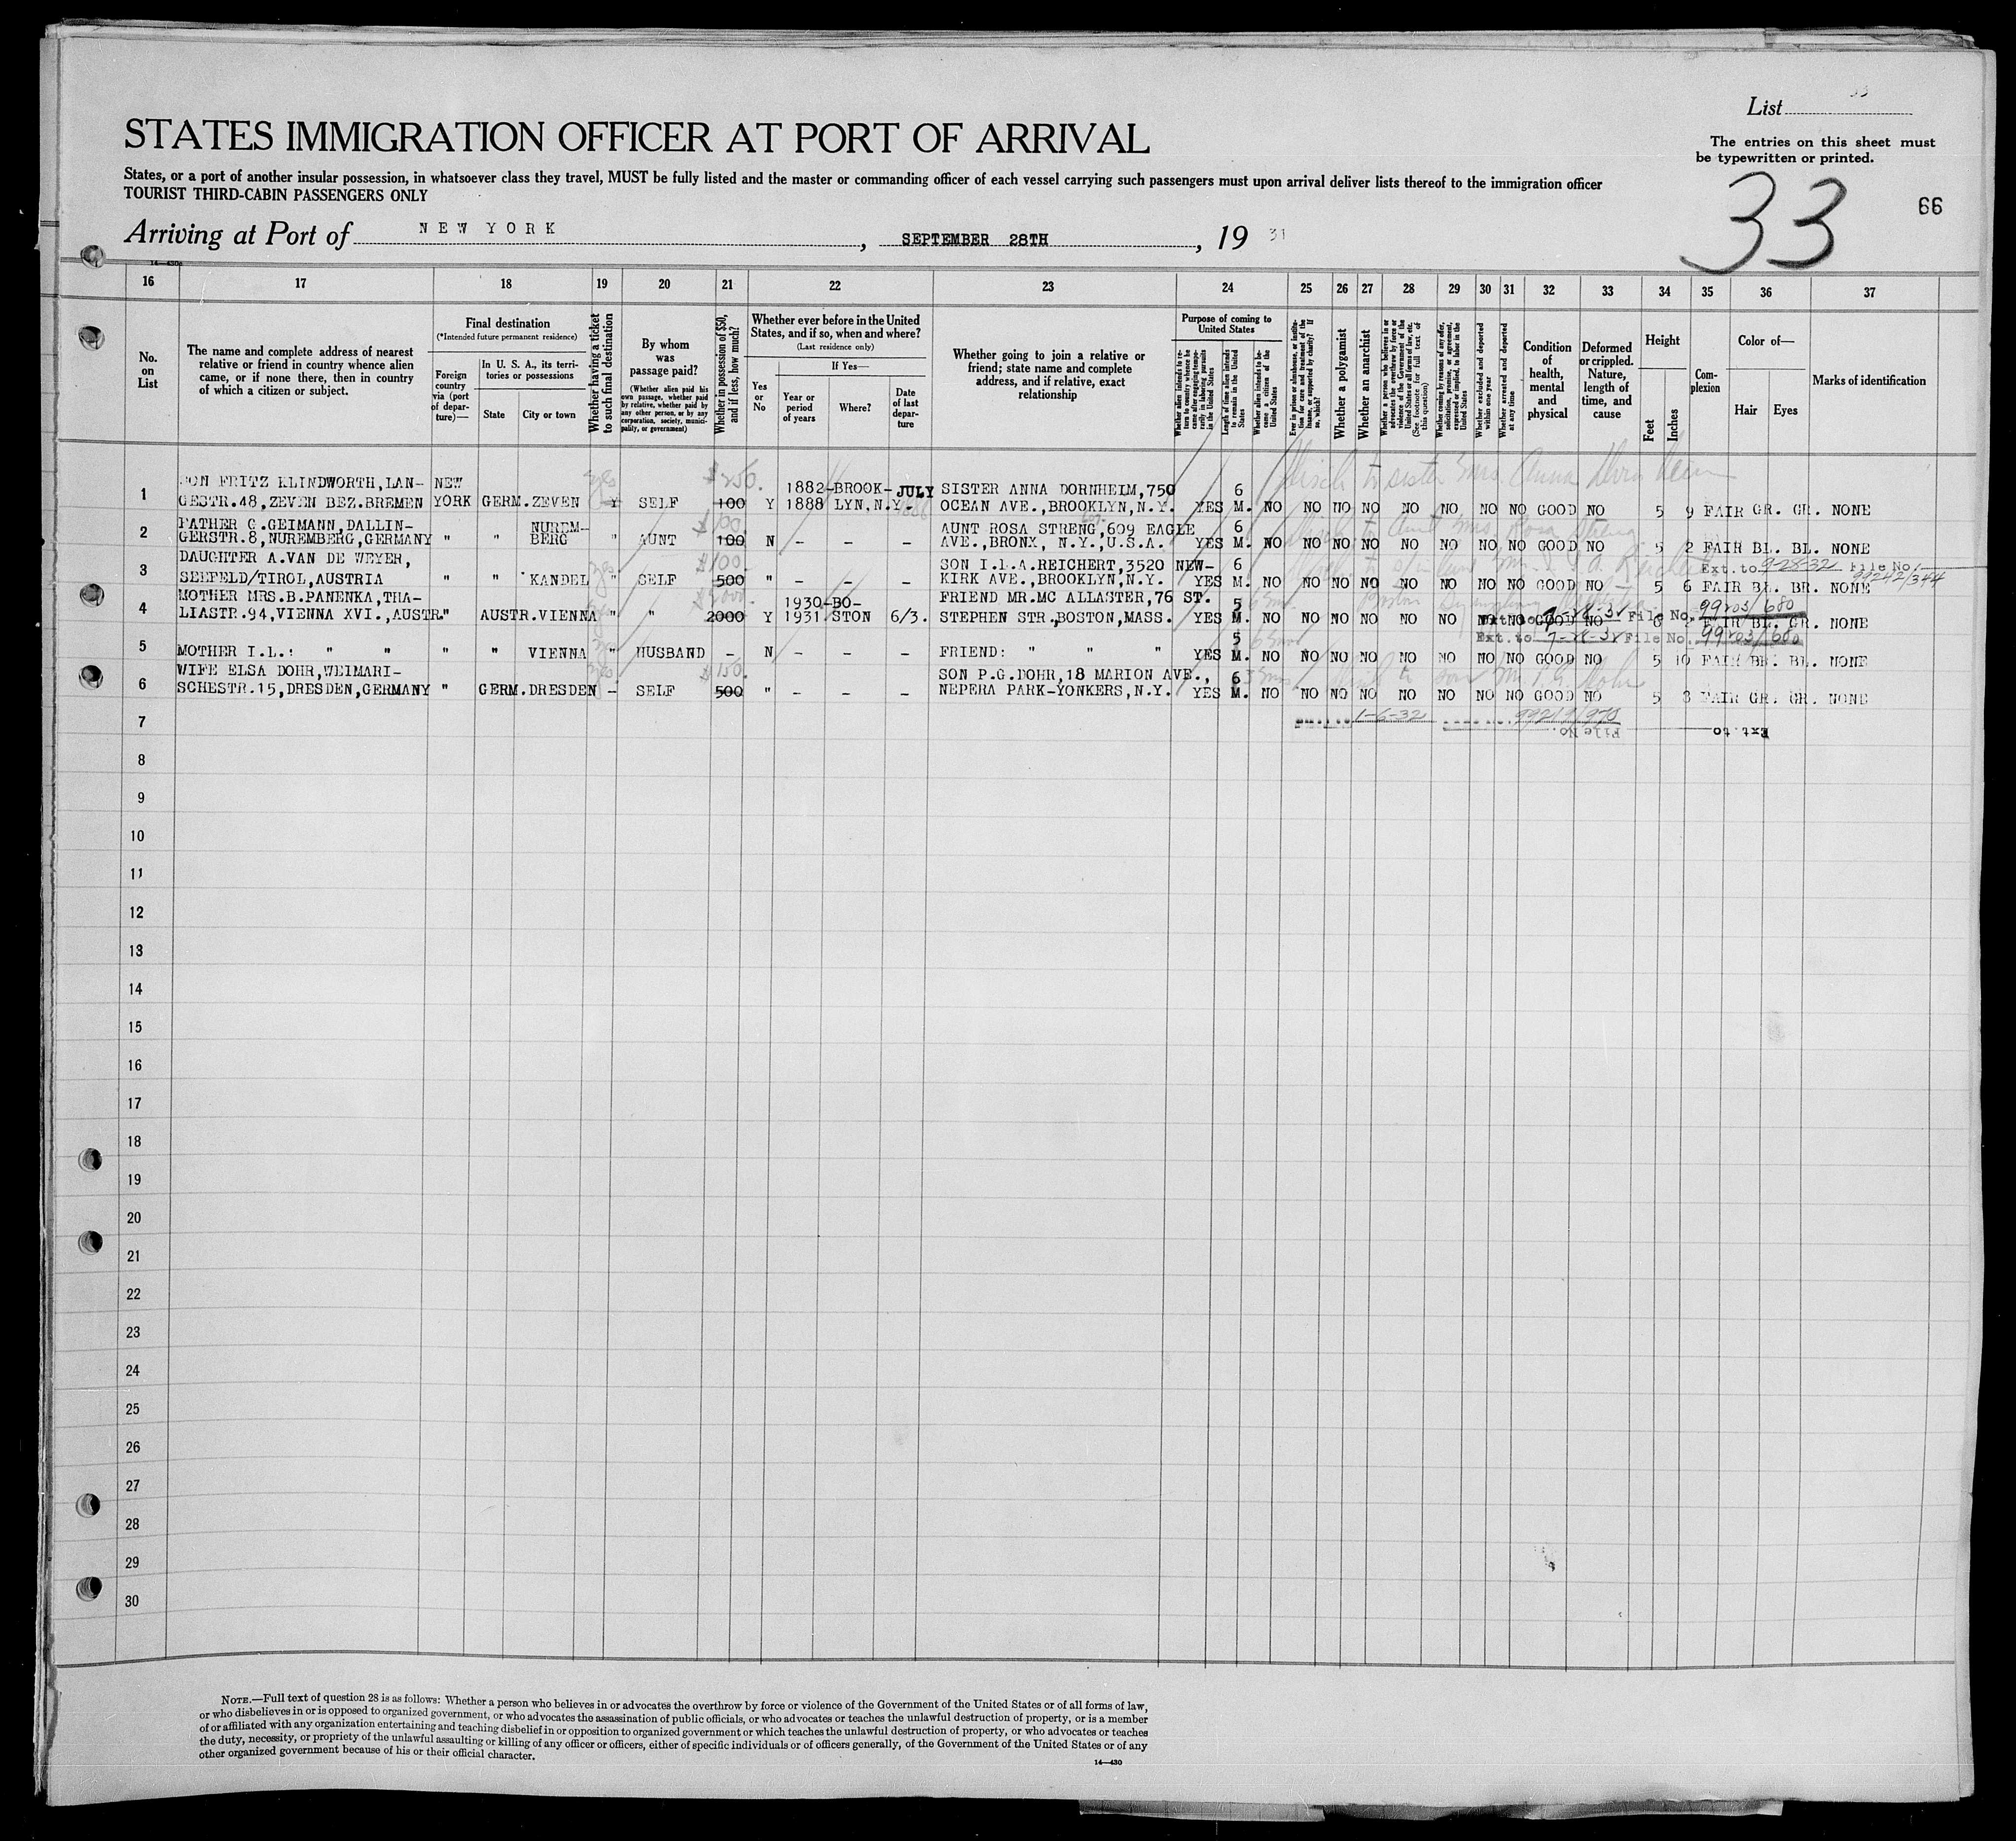 List 33
STATES IMMIGRATION OFFICER AT PORT OF ARRIVAL
The entries on this sheet must
be typewritten or printed.
States, or a port of another insular possession, in whatsoever class they travel, MUST be fully listed and the master or commanding officer of each vessel carrying such passengers must upon arrival deliver lists thereof to the immigration officer
TOURIST THIRD-CABIN PASSENGERS ONLY
33
66
Arriving at Port of NEW YORK, SEPTEMBER 28TH, 19 31
14—430c
16 17 18 19 20 21 22 23 24 25 26 27 28 29 30 31 32 33 34 35 36 37
No. on List
The name and complete address of nearest relative or friend in country whence alien came, or if none there, then in country of which a citizen or subject.
Final destination
(*Intended future permanent residence)
Foreign country via (port of departure)—
In U. S. A., its territories or possessions
State
City or town
Whether having a ticket to such final destination
By whom was passage paid?
(Whether alien paid his own passage, whether paid by relative, whether paid by any other person, or by any corporation, society, municipality, or government)
Whether in possession of $50, and if less, how much?
Whether ever before in the United States, and if so, when and where?
(Last residence only)
Yes or No
If Yes—
Year or period of years
Where?
Date of last departure
Whether going to join a relative or friend; state name and complete address, and if relative, exact relationship
Purpose of coming to United States
Whether alien intends to return to country whence he came after engaging temporarily in laboring pursuits in the United States
Length of time alien intends to remain in the United States
Whether alien intends to become a citizen of the United States
Ever in prison or almshouse, or institution for care and treatment of the insane, or supported by charity? If so, which?
Whether a polygamist
Whether an anarchist
Whether a person who believes in or advocates the overthrow by force or violence of the Government of the United States or all forms of law, etc. (See footnote for full text of this question)
Whether coming by reasons of any offer, solicitation, promise, or agreement, expressed or implied, to labor in the United States
Whether excluded and deported within one year
Whether arrested and deported at any time
Condition of health, mental and physical
Deformed or crippled. Nature, length of time, and cause
Height
Feet
Inches
Complexion
Color of—
Hair
Eyes
Marks of identification
$250.
1 SON FRITZ KLINDWORTH, LAN- NEW 1882-BROOK-JULY SISTER ANNA DORNHEIM, 750 6
GESTR.48, ZEVEN BEZ.BREMEN YORK GERM. ZEVEN Y SELF 100 Y 1888 LYN, N.Y. OCEAN AVE., BROOKLYN, N.Y. YES M. NO NO NO NO NO NO NO NO GOOD NO 5 9 FAIR GR. GR. NONE
2 FATHER G.GEIMANN, DALLIN- NUREM- AUNT ROSA STRENG, 609 EAGLE 6
GERSTR.8, NUREMBERG, GERMANY " " BERG " AUNT 100 N - - - AVE., BRONX, N.Y., U.S.A. YES M. NO NO NO NO NO NO NO NO GOOD NO 5 2 FAIR BL. BL. NONE
Ext. to 9-28-32 File No. 99242/344
3 DAUGHTER A.VAN DE WEYER, $100. SON I.L.A.REICHERT, 3520 NEW- 6
SEEFELD/TIROL, AUSTRIA " " KANDEL " SELF 500 " - - - KIRK AVE., BROOKLYN, N.Y. YES M. NO NO NO NO NO NO NO NO GOOD NO 5 6 FAIR BL. BR. NONE
4 MOTHER MRS.B.PANENKA, THA- 1930-BO- FRIEND MR.MC ALLASTER, 76 ST. 5
LIASTR.94, VIENNA XVI., AUSTR. " AUSTR.VIENNA " " 2000 Y 1931 STON 6/3. STEPHEN STR., BOSTON, MASS. YES M. NO NO NO NO NO NO NO NO GOOD NO FAIR BL. GR. NONE
File No. 99203/680
Ext. to 7-28-32 File No. 99203/680
5 5
MOTHER I.L.: " " " " VIENNA " HUSBAND - N - - - FRIEND: " " " YES M. NO NO NO NO NO NO NO NO GOOD NO 5 10 FAIR BR. BL. NONE
6 WIFE ELSA DOHR, WEIMARI- $150. SON P.G.DOHR, 18 MARION AVE., 6
SCHESTR.15, DRESDEN, GERMANY " GERM.DRESDEN - SELF 500 " - - - NEPERA PARK-YONKERS, N.Y. YES M. NO NO NO NO NO NO NO NO GOOD NO 5 8 FAIR GR. GR. NONE
7 1-6-32 99219/970
File No. Ext. to
8
9
10
11
12
13
14
15
16
17
18
19
20
21
22
23
24
25
26
27
28
29
30
NOTE.—Full text of question 28 is as follows: Whether a person who believes in or advocates the overthrow by force or violence of the Government of the United States or of all forms of law,
or who disbelieves in or is opposed to organized government, or who advocates the assassination of public officials, or who advocates or teaches the unlawful destruction of property, or is a member
of or affiliated with any organization entertaining and teaching disbelief in or opposition to organized government or which teaches the unlawful destruction of property, or who advocates or teaches
the duty, necessity, or propriety of the unlawful assaulting or killing of any officer or officers, either of specific individuals or of officers generally, of the Government of the United States or of any
other organized government because of his or their official character.
14—430